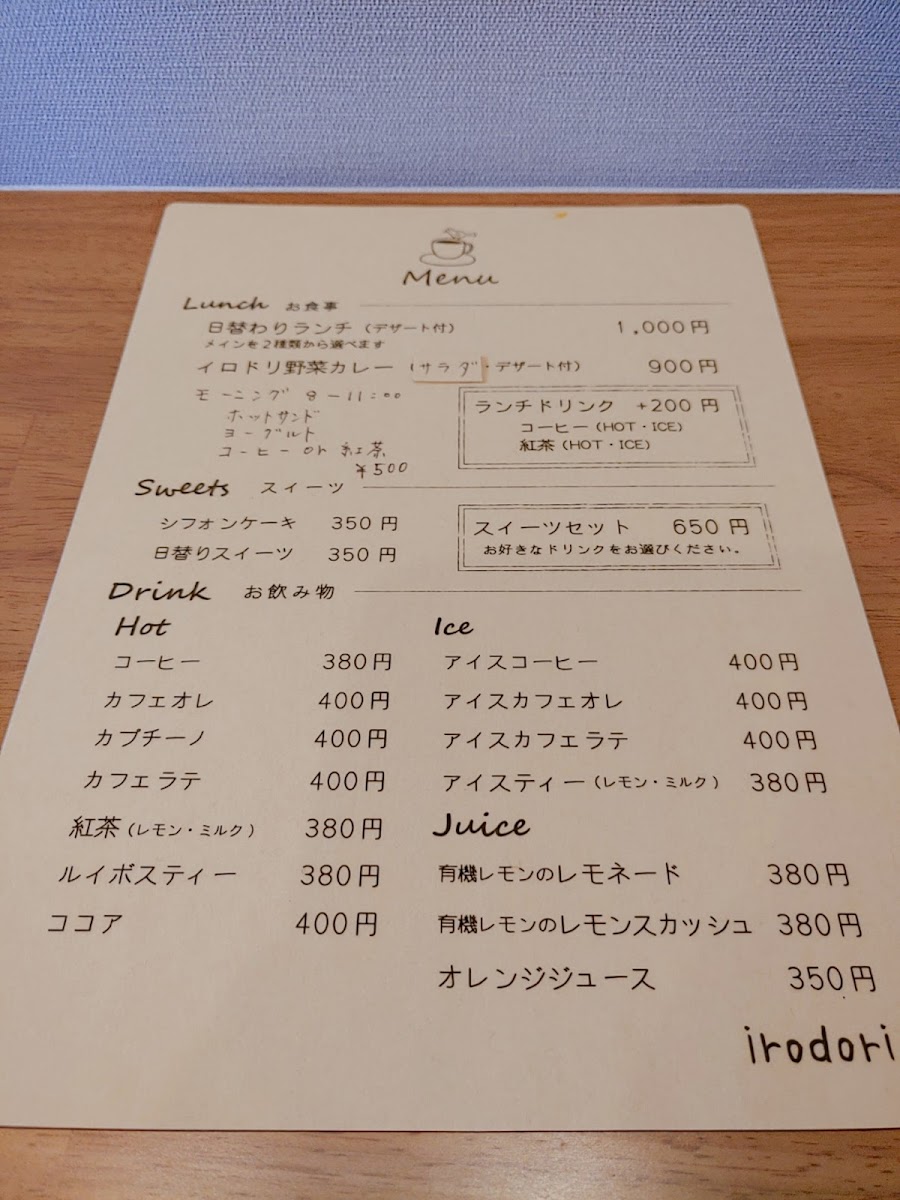 Menu
Lunch お食事
日替わりランチ（デザート付） 1,000円
メインを2種類から選べます
イロドリ野菜カレー（サラダ・デザート付） 900円
モーニング 8－11:00
ホットサンド
ヨーグルト
コーヒー or 紅茶
¥500
ランチドリンク +200円
コーヒー（HOT・ICE）
紅茶（HOT・ICE）
Sweets スイーツ
シフォンケーキ 350円
日替りスイーツ 350円
スイーツセット 650円
お好きなドリンクをお選びください。
Drink お飲み物
Hot
コーヒー 380円
カフェオレ 400円
カプチーノ 400円
カフェラテ 400円
紅茶（レモン・ミルク） 380円
ルイボスティー 380円
ココア 400円
Ice
アイスコーヒー 400円
アイスカフェオレ 400円
アイスカフェラテ 400円
アイスティー（レモン・ミルク） 380円
Juice
有機レモンのレモネード 380円
有機レモンのレモンスカッシュ 380円
オレンジジュース 350円
irodori